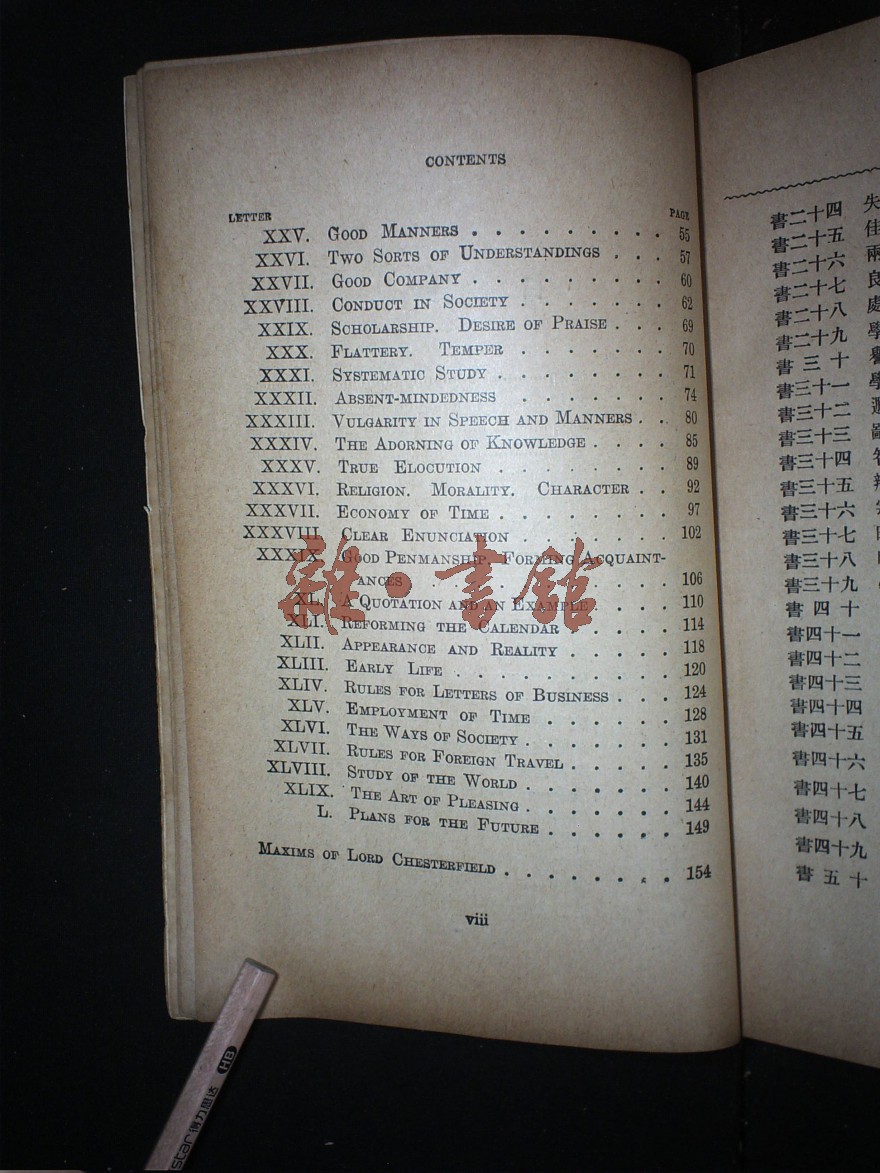 CONTENTS
LETTER PAGE
XXV. GOOD MANNERS . . . . . . . . . 55
XXVI. TWO SORTS OF UNDERSTANDINGS . . . 57
XXVII. GOOD COMPANY . . . . . . . . . 60
XXVIII. CONDUCT IN SOCIETY . . . . . . . 62
XXIX. SCHOLARSHIP. DESIRE OF PRAISE . . . 69
XXX. FLATTERY. TEMPER . . . . . . . 70
XXXI. SYSTEMATIC STUDY . . . . . . . . 71
XXXII. ABSENT-MINDEDNESS . . . . . . . 74
XXXIII. VULGARITY IN SPEECH AND MANNERS . . 80
XXXIV. THE ADORNING OF KNOWLEDGE . . . . 85
XXXV. TRUE ELOCUTION . . . . . . . . 89
XXXVI. RELIGION. MORALITY. CHARACTER . . 92
XXXVII. ECONOMY OF TIME . . . . . . . . 97
XXXVIII. CLEAR ENUNCIATION . . . . . . . 102
XXXIX. GOOD PENMANSHIP. FORMING ACQUAINT-
ANCES . . . . . . . . . . 106
XL. A QUOTATION AND AN EXAMPLE . . . . 110
XLI. REFORMING THE CALENDAR . . . . . 114
XLII. APPEARANCE AND REALITY . . . . . 118
XLIII. EARLY LIFE . . . . . . . . . 120
XLIV. RULES FOR LETTERS OF BUSINESS . . . 124
XLV. EMPLOYMENT OF TIME . . . . . . 128
XLVI. THE WAYS OF SOCIETY . . . . . . 131
XLVII. RULES FOR FOREIGN TRAVEL . . . . . 135
XLVIII. STUDY OF THE WORLD . . . . . . 140
XLIX. THE ART OF PLEASING . . . . . . 144
L. PLANS FOR THE FUTURE . . . . . . 149
MAXIMS OF LORD CHESTERFIELD . . . . . . . . 154
viii
雜·書館
書二十四 失
書二十五 佳
書二十六 兩
書二十七 良
書二十八 處
書二十九 學
書三十 譽
書三十一 學
書三十二
書三十三
書三十四
書三十五
書三十六
書三十七
書三十八
書三十九
書四十
書四十一
書四十二
書四十三
書四十四
書四十五
書四十六
書四十七
書四十八
書四十九
書五十
star 得力思达 HB